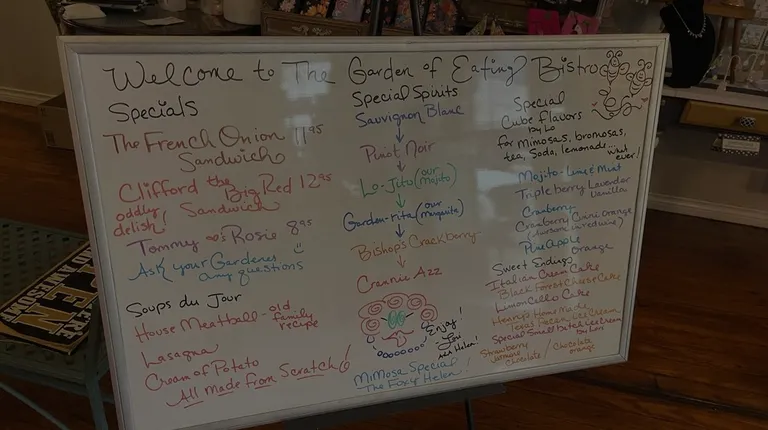 Welcome to The Garden of Eating Bistro
Specials
The French Onion 11.95
Sandwich
Clifford the Big Red 12.95
oddly Sandwich
delish!
Tommy Rosie 8.95
Ask your Gardenes
any questions
Soups du Jour
House Meatball - old
family
recipe
Lasagna
Cream of Potato
All made from Scratch!
Special Spirits
Sauvignon Blanc
Pinot Noir
Lo-Jito (our
Mojito)
Garden-Rita (our
Margarita)
Bishop's Crackberry
Azz
Enjoy!
Helen!
MiMosa Special!
The Foxy Helen!
Special
Cube flavors
by Lo
for mimosas, bromosas,
tea, Soda, lemonade... what
ever!
Mojito - Lime & Mint
Triple berry Lavender
Vanilla
Cranberry
Cranberry Orange
Pineapple
Orange
Sweet Endings
Italian Cream Cake
Black Forest Cheese Cake
LimonCello Cake
Home Made
Texas Pecan Ice Cream
Special Small batch ice cream
by Lori
Strawberry
Jasmine
Chocolate / Chocolate
orange